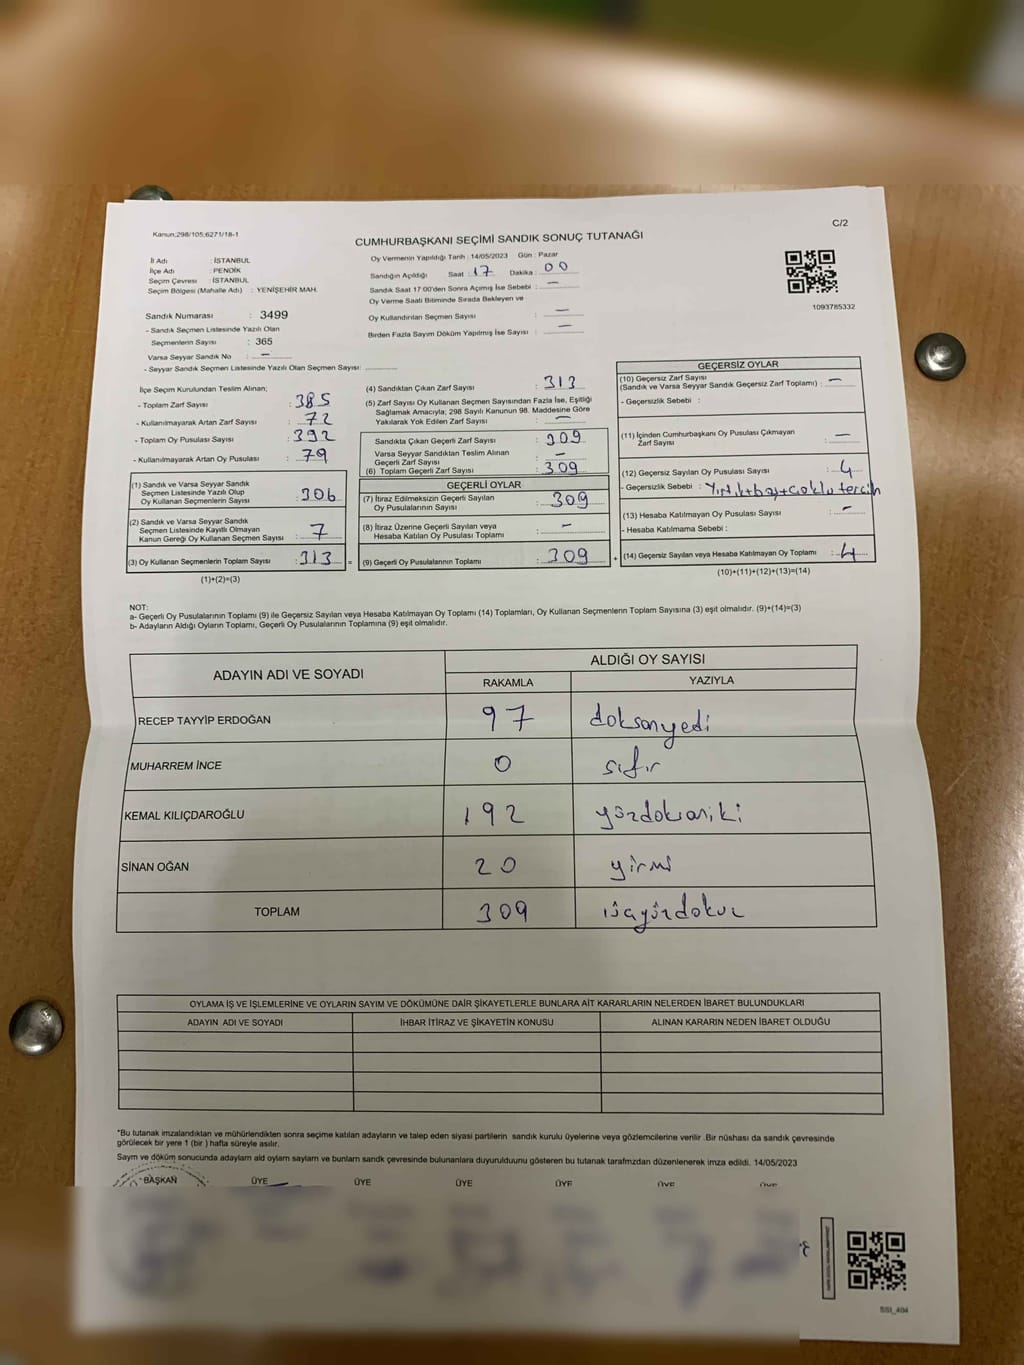 Kanun;298/105;6271/18-1
C/2
CUMHURBAŞKANI SEÇİMİ SANDIK SONUÇ TUTANAĞI
İl Adı : İSTANBUL
İlçe Adı : PENDİK
Seçim Çevresi : İSTANBUL
Seçim Bölgesi (Mahalle Adı) : YENİŞEHİR MAH.
Oy Vermenin Yapıldığı Tarih : 14/05/2023 Gün : Pazar
Sandığın Açıldığı Saat : 17 Dakika : 00
Sandık Saat 17:00'den Sonra Açımış İse Sebebi : —
Oy Verme Saati Bitiminde Sırada Bekleyen ve
Oy Kullandırılan Seçmen Sayısı : —
Birden Fazla Sayım Döküm Yapılmış İse Sayısı : —
1093785332
Sandık Numarası : 3499
- Sandık Seçmen Listesinde Yazılı Olan
Seçmenlerin Sayısı : 365
Varsa Seyyar Sandık No : —
- Seyyar Sandık Seçmen Listesinde Yazılı Olan Seçmen Sayısı:
İlçe Seçim Kurulundan Teslim Alınan;
- Toplam Zarf Sayısı : 385
- Kullanılmayarak Artan Zarf Sayısı : 72
- Toplam Oy Pusulası Sayısı : 392
- Kullanılmayarak Artan Oy Pusulası : 79
(1) Sandık ve Varsa Seyyar Sandık
Seçmen Listesinde Yazılı Olup
Oy Kullanan Seçmenlerin Sayısı : 306
(2) Sandık ve Varsa Seyyar Sandık
Seçmen Listesinde Kayıtlı Olmayan
Kanun Gereği Oy Kullanan Seçmen Sayısı : 7
(3) Oy Kullanan Seçmenlerin Toplam Sayısı : 313 =
(1)+(2)=(3)
(4) Sandıktan Çıkan Zarf Sayısı : 313
(5) Zarf Sayısı Oy Kullanan Seçmen Sayısından Fazla İse, Eşitliği
Sağlamak Amacıyla; 298 Sayılı Kanunun 98. Maddesine Göre
Yakılarak Yok Edilen Zarf Sayısı : —
Sandıkta Çıkan Geçerli Zarf Sayısı : 309
Varsa Seyyar Sandıktan Teslim Alınan
Geçerli Zarf Sayısı : —
(6) Toplam Geçerli Zarf Sayısı : 309
GEÇERLİ OYLAR
(7) İtiraz Edilmeksizin Geçerli Sayılan
Oy Pusulalarının Sayısı : 309
(8) İtiraz Üzerine Geçerli Sayılan veya
Hesaba Katılan Oy Pusulası Toplamı : —
(9) Geçerli Oy Pusulalarının Toplamı : 309 +
GEÇERSİZ OYLAR
(10) Geçersiz Zarf Sayısı
(Sandık ve Varsa Seyyar Sandık Geçersiz Zarf Toplamı) : —
- Geçersizlik Sebebi :
(11) İçinden Cumhurbaşkanı Oy Pusulası Çıkmayan
Zarf Sayısı : —
(12) Geçersiz Sayılan Oy Pusulası Sayısı : 4
- Geçersizlik Sebebi : Yırtık+boş+çoklu tercih
(13) Hesaba Katılmayan Oy Pusulası Sayısı : —
- Hesaba Katılmama Sebebi :
(14) Geçersiz Sayılan veya Hesaba Katılmayan Oy Toplamı : 4
(10)+(11)+(12)+(13)=(14)
NOT:
a- Geçerli Oy Pusulalarının Toplamı (9) ile Geçersiz Sayılan veya Hesaba Katılmayan Oy Toplamı (14) Toplamları, Oy Kullanan Seçmenlerin Toplam Sayısına (3) eşit olmalıdır. (9)+(14)=(3)
b- Adayların Aldığı Oyların Toplamı, Geçerli Oy Pusulalarının Toplamına (9) eşit olmalıdır.
ADAYIN ADI VE SOYADI
ALDIĞI OY SAYISI
RAKAMLA YAZIYLA
RECEP TAYYİP ERDOĞAN 97 doksanyedi
MUHARREM İNCE 0 sıfır
KEMAL KILIÇDAROĞLU 192 yüzdoksaniki
SİNAN OĞAN 20 yirmi
TOPLAM 309 üçyüzdokuz
OYLAMA İŞ VE İŞLEMLERİNE VE OYLARIN SAYIM VE DÖKÜMÜNE DAİR ŞİKAYETLERLE BUNLARA AİT KARARLARIN NELERDEN İBARET BULUNDUKLARI
ADAYIN ADI VE SOYADI İHBAR İTİRAZ VE ŞİKAYETİN KONUSU ALINAN KARARIN NEDEN İBARET OLDUĞU
*Bu tutanak imzalandıktan ve mühürlendikten sonra seçime katılan adayların ve talep eden siyasi partilerin sandık kurulu üyelerine veya gözlemcilerine verilir .Bir nüshası da sandık çevresinde
görülecek bir yere 1 (bir ) hafta süreyle asılır.
Sayım ve döküm sonucunda adayların ald oyların sayların ve bunların sandk çevresinde bulunanlara duyurulduunu gösteren bu tutanak tarafmzdan düzenlenerek imza edildi. 14/05/2023
BAŞKAN ÜYE ÜYE ÜYE ÜYE ÜYE ÜYE
SSI_404